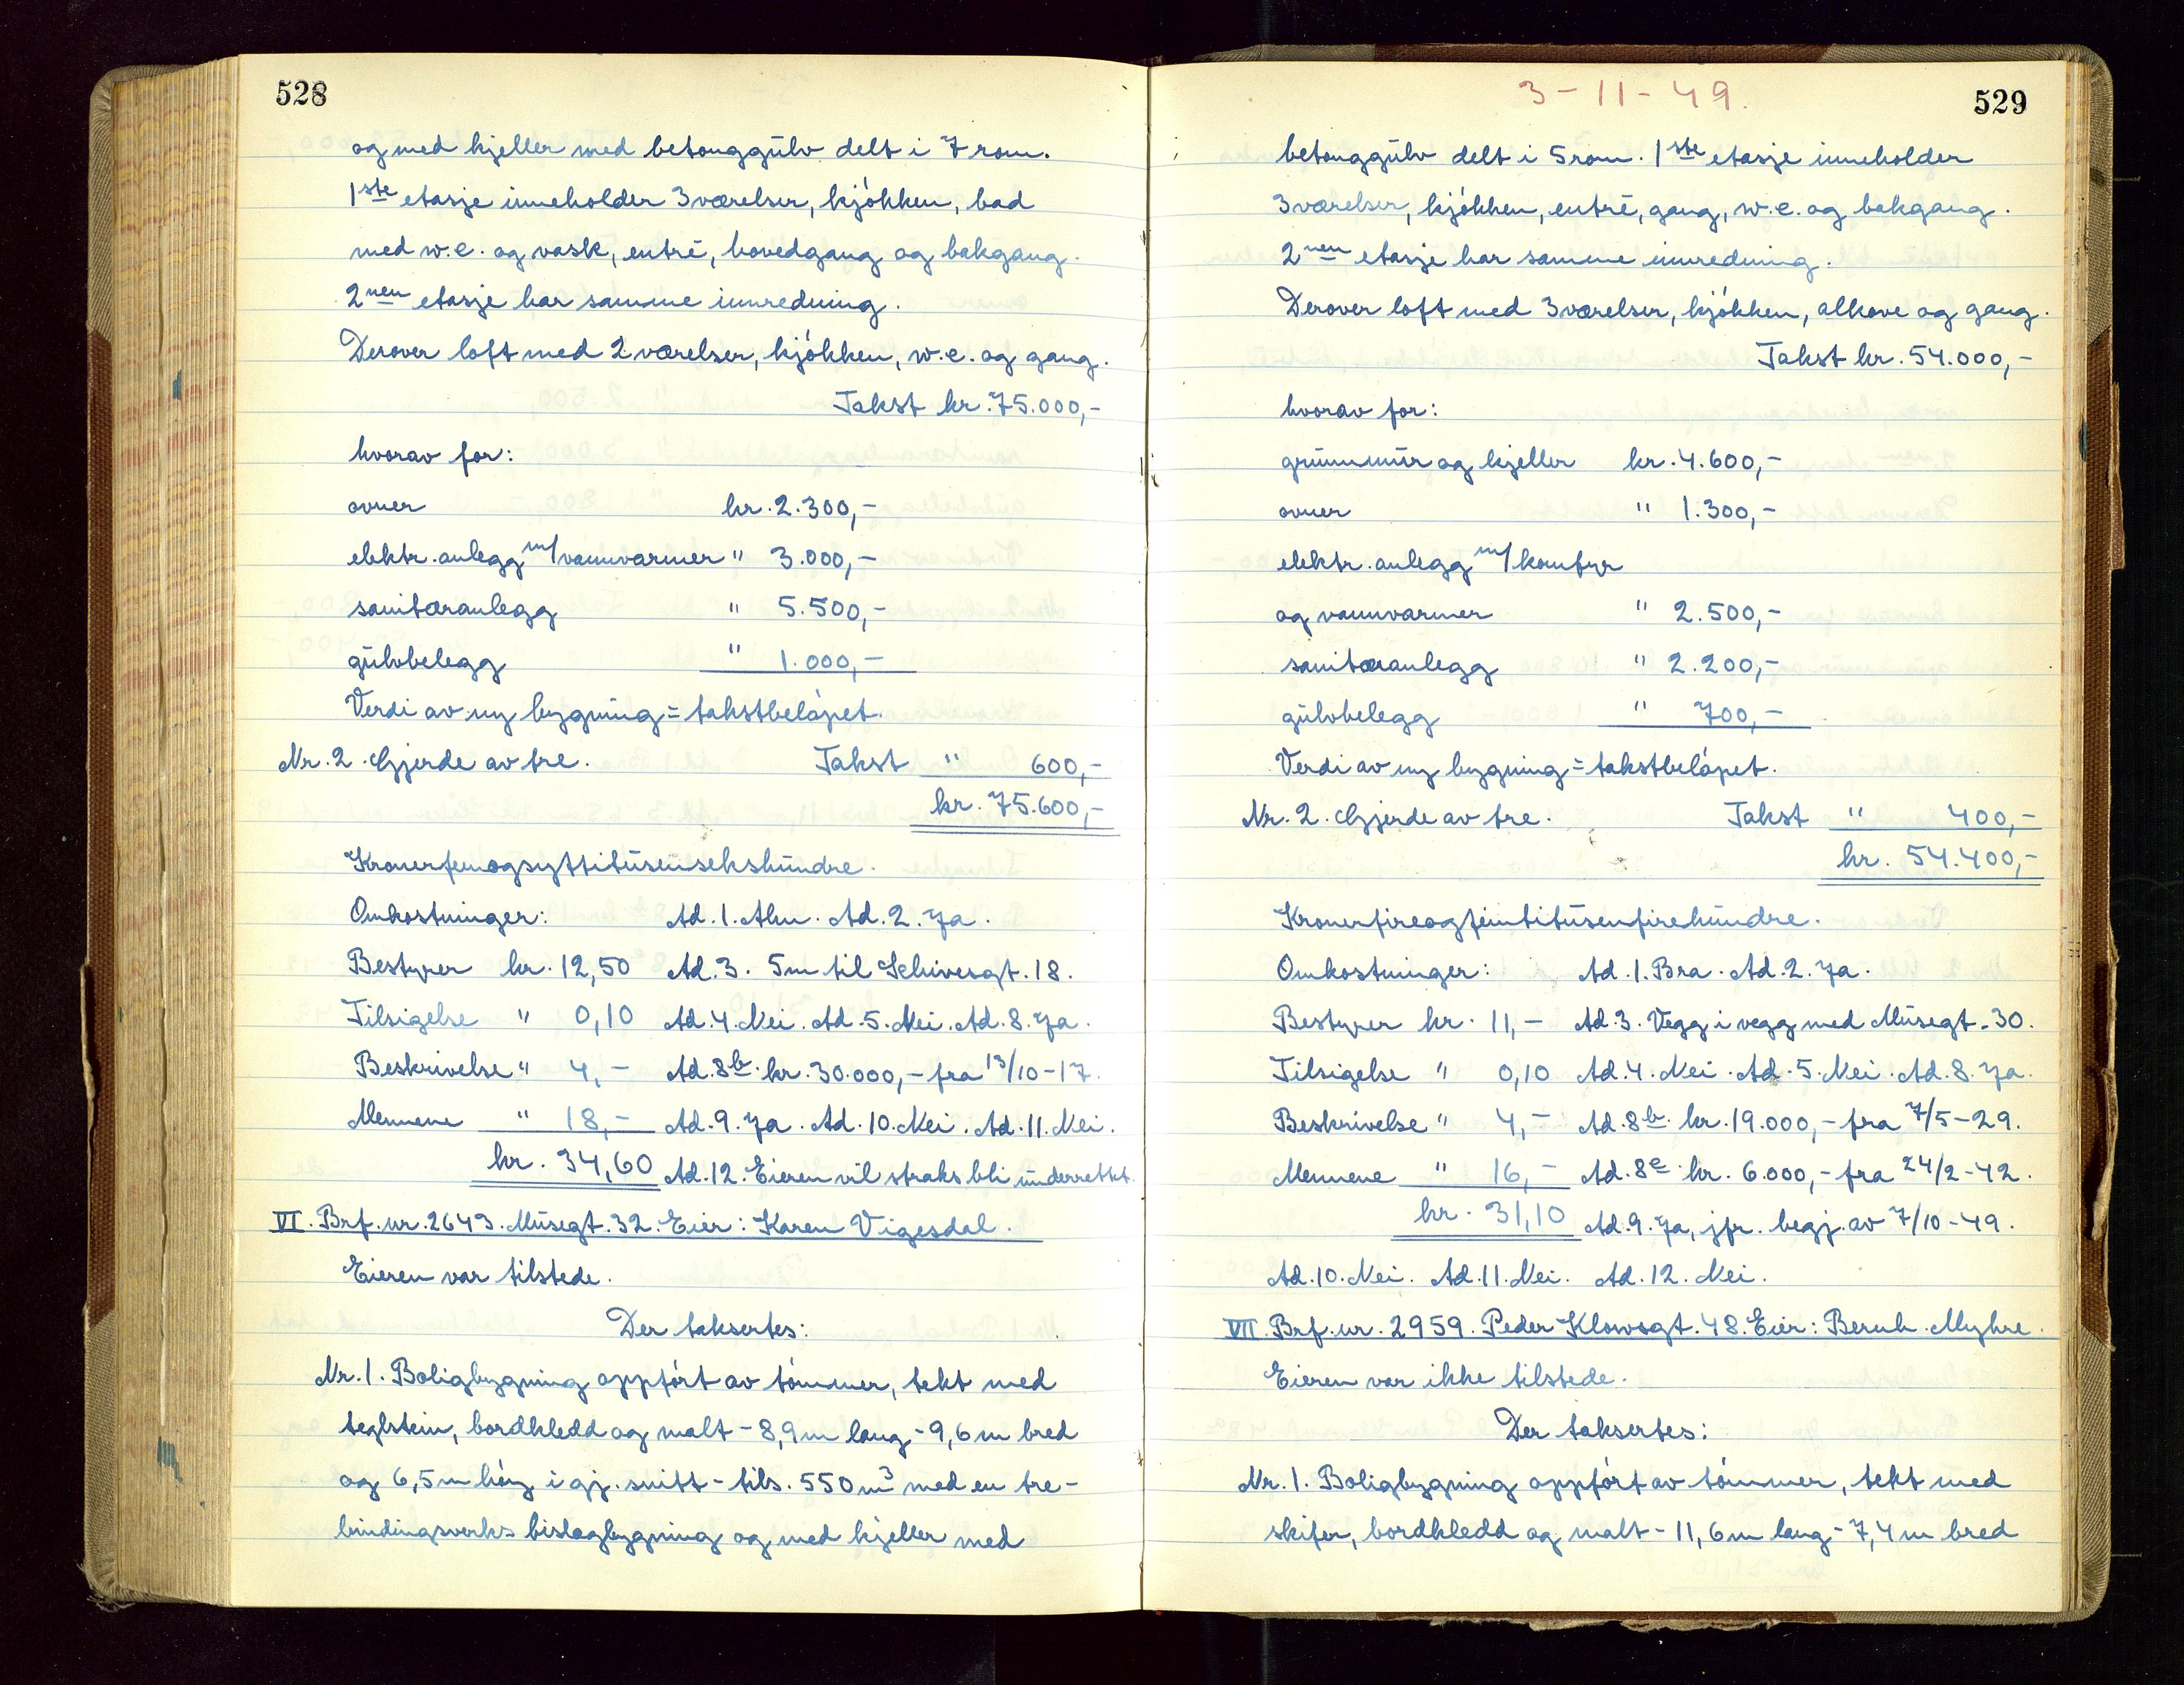 528
og med kjeller med betonggulv delt i 7 rom.
1ste etasje inneholder 3 værelser, kjøkken, bad
med w.c. og vask, entré, hovedgang og bakgang.
2nen etasje har samme innredning.
Derover loft med 2 værelser, kjøkken, w.c. og gang.
Takst kr. 75.000,-
hvorav for:
ovner kr. 2.300,-
elektr. anlegg m/vannvarmer " 3.000,-
sanitæranlegg " 5.500,-
gulvbelegg " 1.000,-
Verdi av ny bygning = takstbeløpet.
Nr. 2. Gjerde av tre. Takst " 600,-
kr. 75.600,-
Kronerfemogsyttitusensekshundre.
Omkostninger: Ad. 1. Alm. Ad. 2. Ja.
Bestyrer kr. 12,50 Ad. 3. 5m til Schivesgt. 18.
Tilsigelse " 0,10 Ad. 4. Nei. Ad. 5. Nei. Ad. 8. Ja.
Beskrivelse " 4,- Ad. 8b. kr. 30.000,- fra 13/10-17.
Mennene " 18,- Ad. 9. Ja. Ad. 10. Nei. Ad. 11. Nei.
kr. 34,60 Ad. 12. Eieren vil straks bli underrettet.
VI. Brf. nr. 2643. Musegt. 32. Eier: Karen Vigesdal.
Eieren var tilstede.
Der taksertes:
Nr. 1. Boligbygning oppført av tømmer, tekt med
teglstein, bordkledd og malt - 8,9 m lang - 9,6 m bred
og 6,5 m høy i gj. snitt - tils. 550 m3 med en tre-
bindingsverks bislagbygning og med kjeller med
3-11-49.
529
betonggulv delt i 5 rom. 1ste etasje inneholder
3 værelser, kjøkken, entré, gang, w.c. og bakgang.
2nen etasje har samme innredning.
Derover loft med 3 værelser, kjøkken, alkove og gang.
Takst kr. 54.000,-
hvorav for:
grunnmur og kjeller kr. 4.600,-
ovner " 1.300,-
elektr. anlegg m/komfyr
og vannvarmer " 2.500,-
sanitæranlegg " 2.200,-
gulvbelegg " 700,-
Verdi av ny bygning = takstbeløpet.
Nr. 2. Gjerde av tre. Takst " 400,-
kr. 54.400,-
Kronerfireogfemtitusenfirehundre.
Omkostninger: Ad. 1. Bra. Ad. 2. Ja.
Bestyrer kr. 11,- Ad. 3. Vegg i vegg med Musegt. 30.
Tilsigelse " 0,10 Ad. 4. Nei. Ad. 5. Nei. Ad. 8. Ja.
Beskrivelse " 4,- Ad. 8b. kr. 19.000,- fra 7/5-29.
Mennene " 16,- Ad. 8c. kr. 6.000,- fra 24/2-42.
kr. 31,10 Ad. 9. Ja, jfr. begj. av 7/10-49.
Ad. 10. Nei. Ad. 11. Nei. Ad. 12. Nei.
VII. Brf. nr. 2959. Peder Klowsgt. 48. Eier: Bernh. Myhre.
Eieren var ikke tilstede.
Der taksertes:
Nr. 1. Boligbygning oppført av tømmer, tekt med
skifer, bordkledd og malt - 11,6 m lang - 7,4 m bred